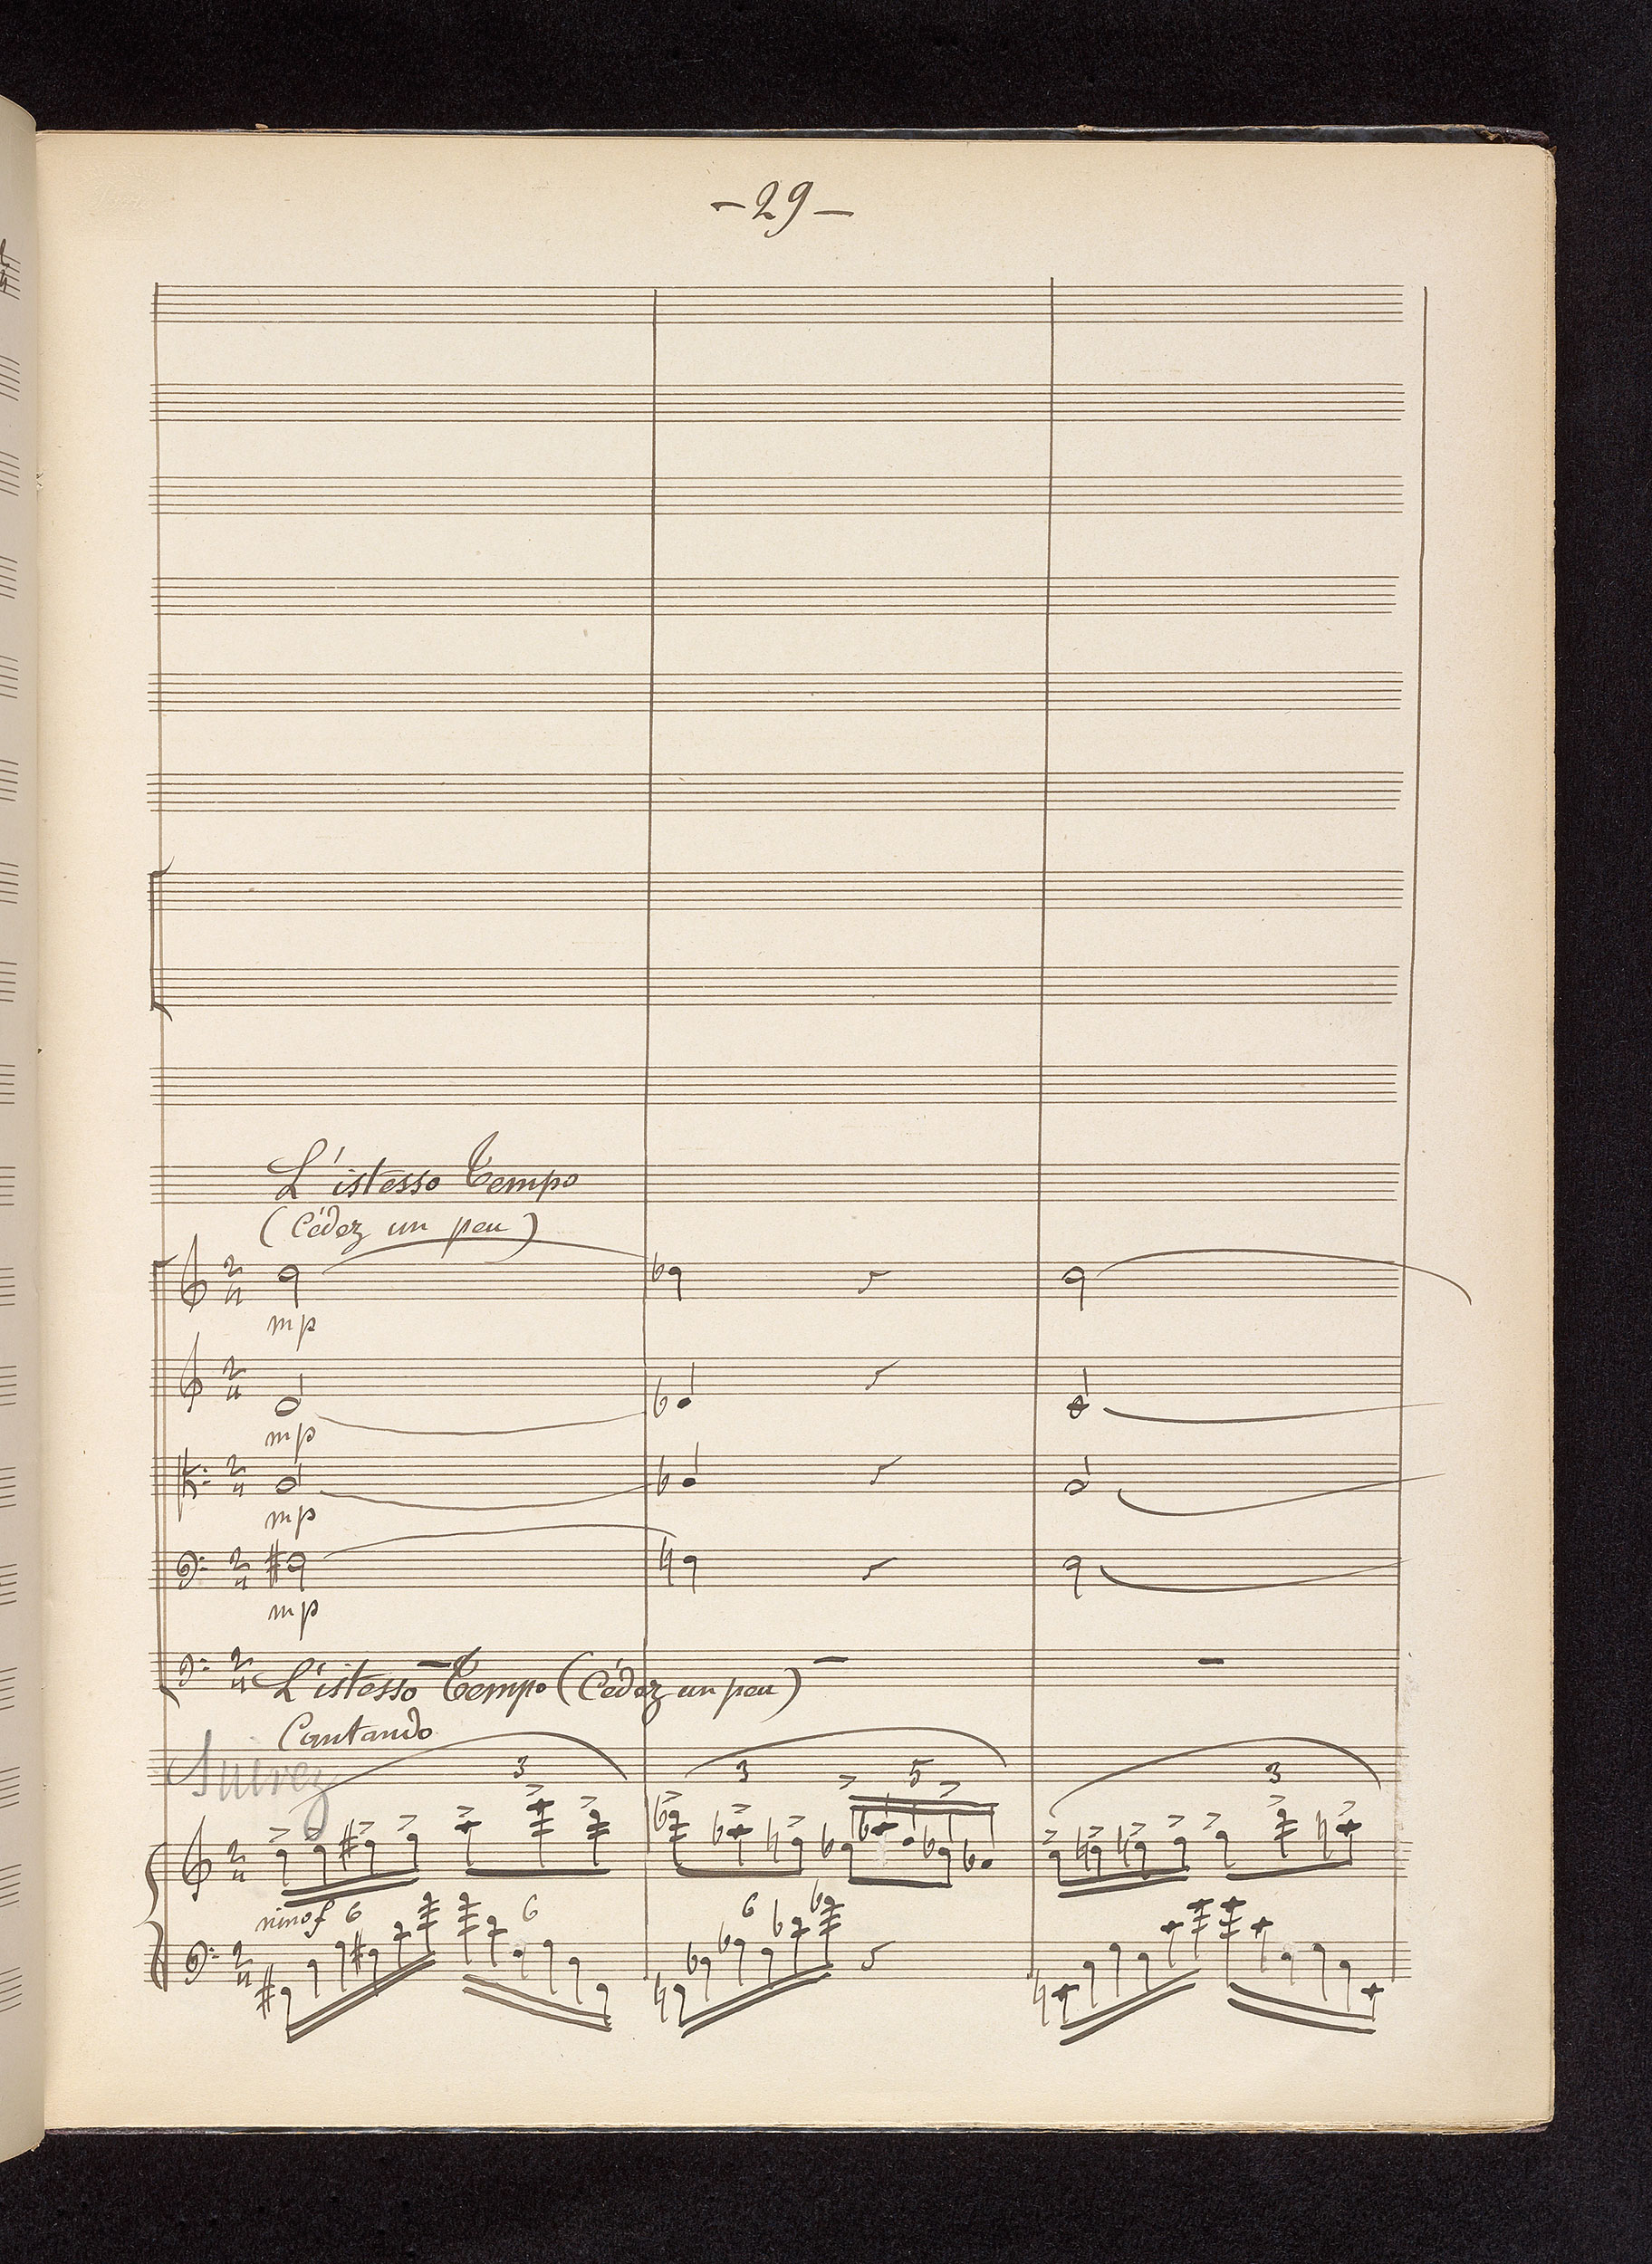 – 29 –
L'istesso Tempo
(Cédez un peu)
mp
mp
mp
mp
L'istesso Tempo (Cédez un peu)
Cantando
Suivez
3
3
5
3
6
6
6